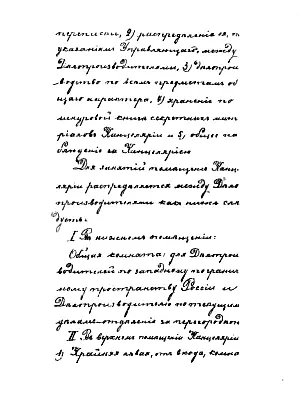 переписки, 2) распределение ея, по
указаніям Управляющаго, между
Делопроизводителями, 3) делопрои
зводство по всем предметам об
щаго характера, 4) храненіе по
шнуровой книге секретных мате
ріалов Канцеляріи и 5) общее на
блюденіе за Канцеляріею
Для занятій помещеніе Канце
ляріи распределяется между Дело
производителями как ниже сле
дует:
I В нижнем помещеніи:
Общая комната: для Делопроиз
водителей по западному погранич
ному пространству Россіи и
Делопроизводителю по текущим
делам отделеніе за перегородкою
II В верхнем помещеніи Канцеляріи
1) Крайняя левая, от входа, комна